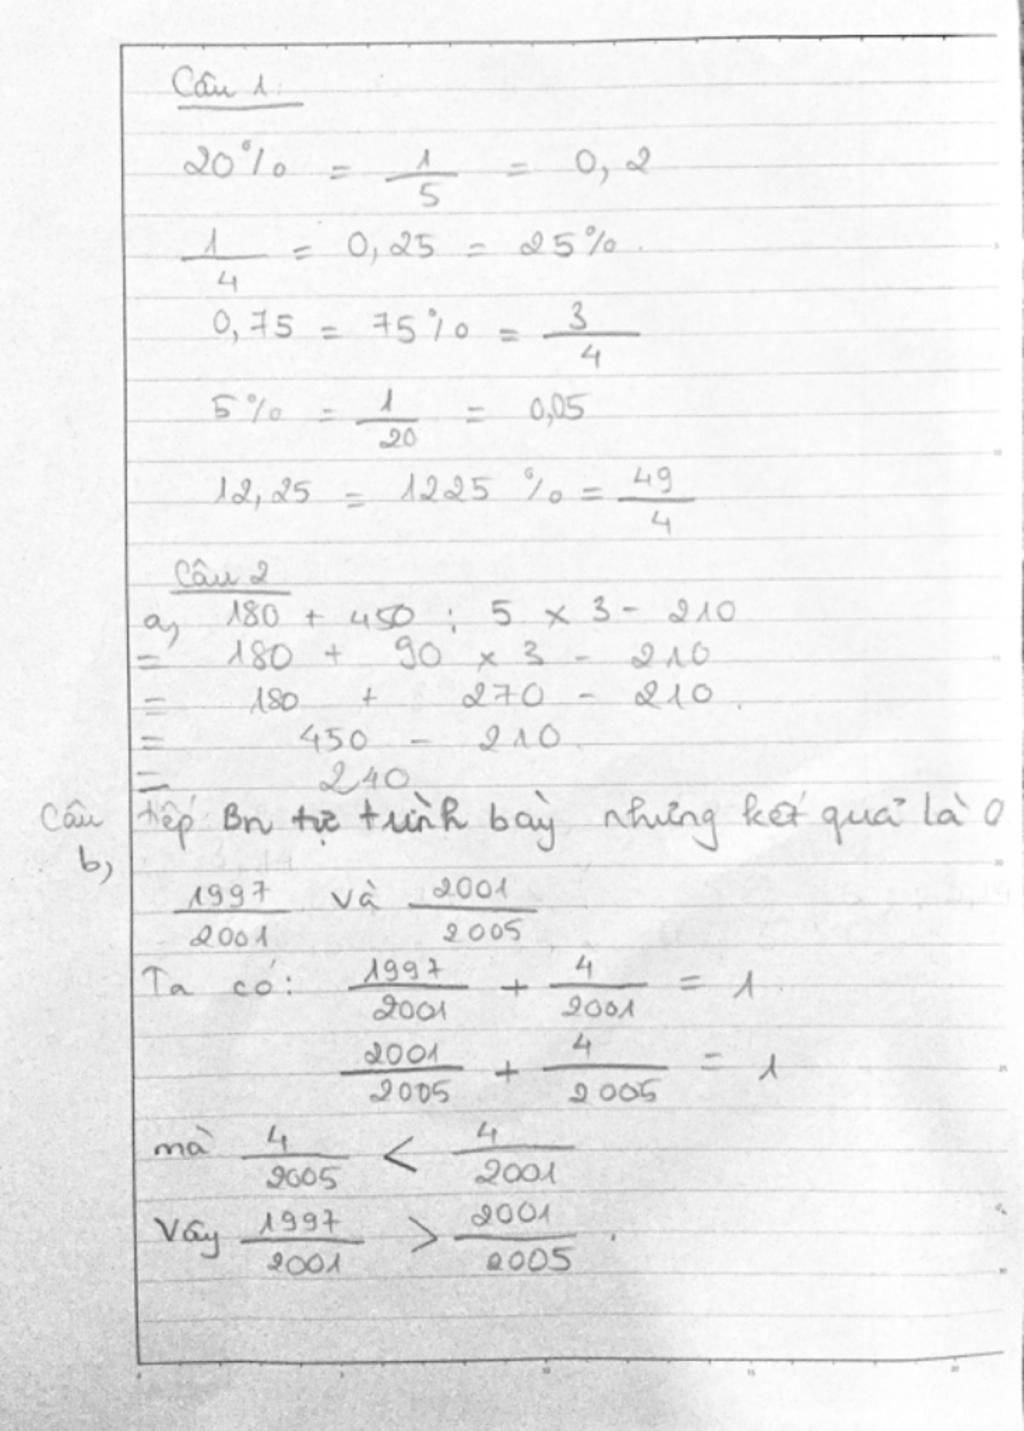 Câu 1:
20% = 1/5 = 0,2
1/4 = 0,25 = 25%.
0,75 = 75% = 3/4
5% = 1/20 = 0,05
12,25 = 1225 % = 49/4
Câu 2
a, 180 + 450 : 5 x 3 - 210
= 180 + 90 x 3 - 210
= 180 + 270 - 210.
= 450 - 210.
= 240
Câu tiếp Bn tự trình bày nhưng kết quả là 0
b,
1997/2001 và 2001/2005
Ta có: 1997/2001 + 4/2001 = 1.
2001/2005 + 4/2005 = 1
mà 4/2005 < 4/2001
Vây 1997/2001 > 2001/2005.